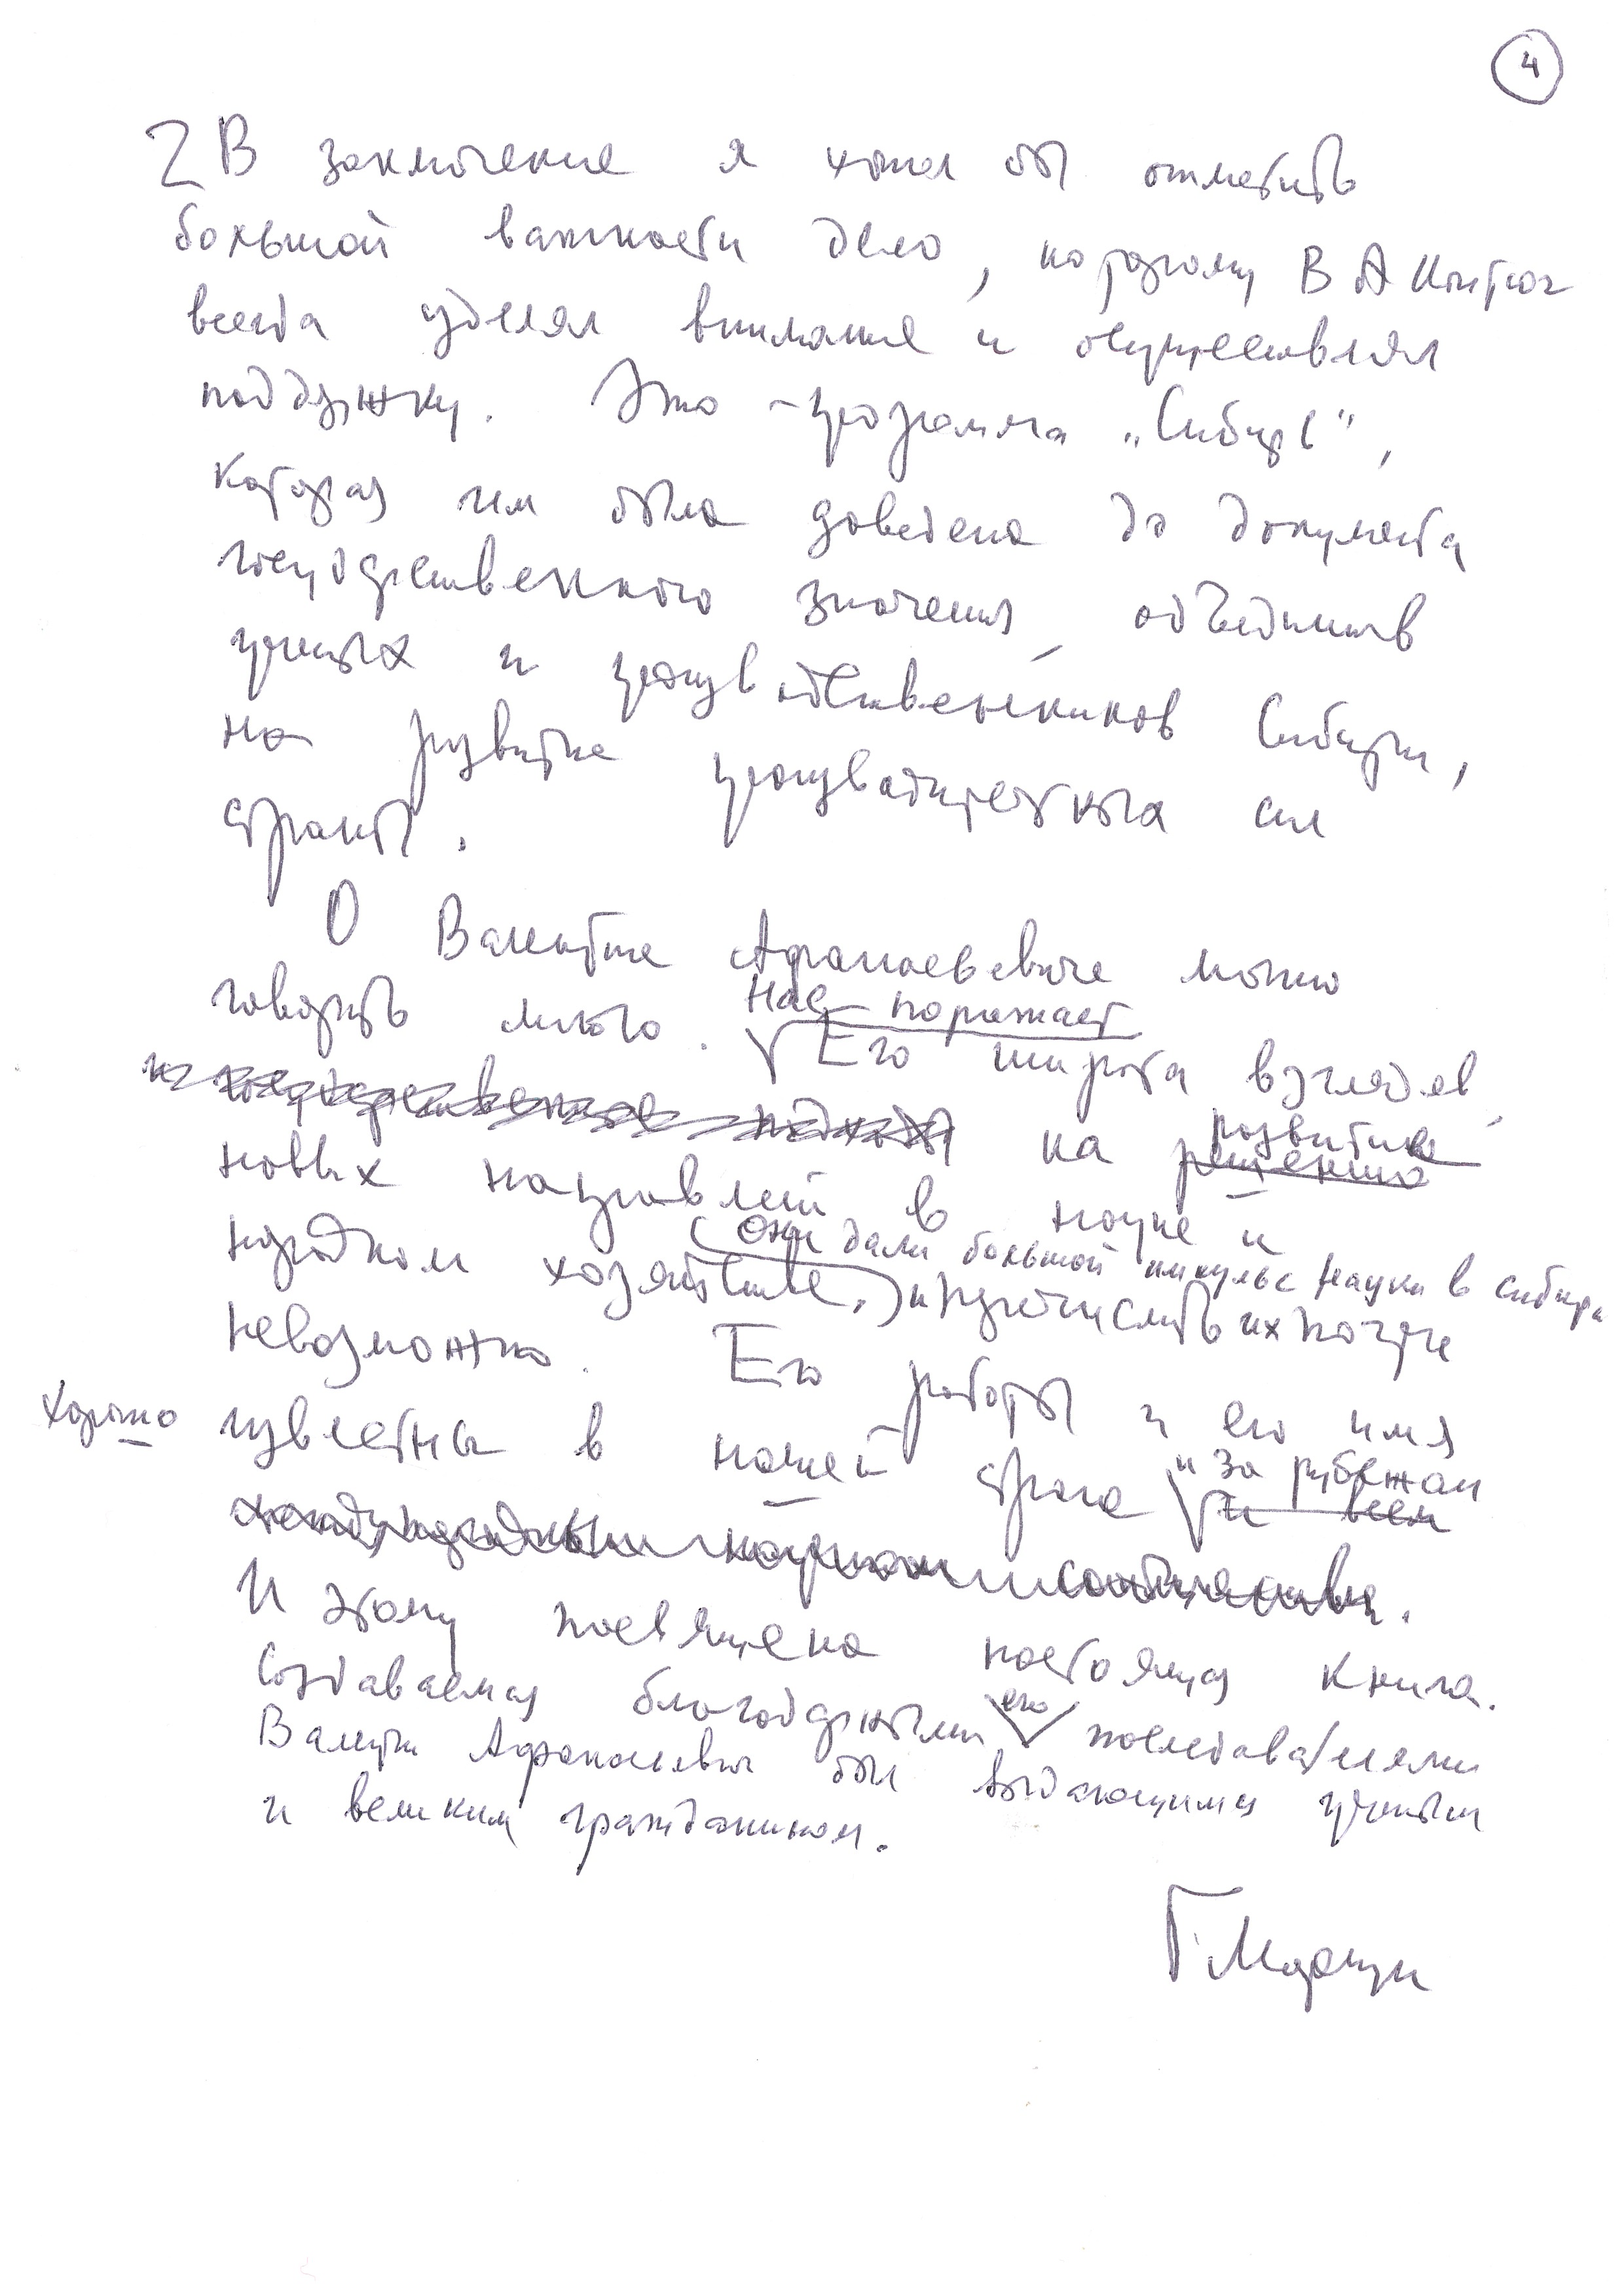 4
В заключение я хотел бы отметить
большой важности дело, которому В А Коптюг
всегда уделял внимание и осуществлял
поддержку. Это – программа „Сибирь",
которая им была доведена до документа
государственного значения, объединив
ученых и производственников Сибири,
на развитие производительных сил
страны.
О Валентине Афанасьевиче можно
говорить много. Нас поражает
Его широта взглядов,
и государственные подходы на решение развитие
новых направлений в науке и
(Они дали большой импульс науки в сибири
народном хозяйстве.) и перечислить их почти
невозможно. Его работы и его имя
хорошо известны в нашей стране и за рубежом
и всем
международным научном сообществе.
И этому посвящена настоящая книга.
Создаваемая благодарными его последователями
Валентин Афанасьевич был выдающимся ученым
и великим гражданином.
Г Марчук